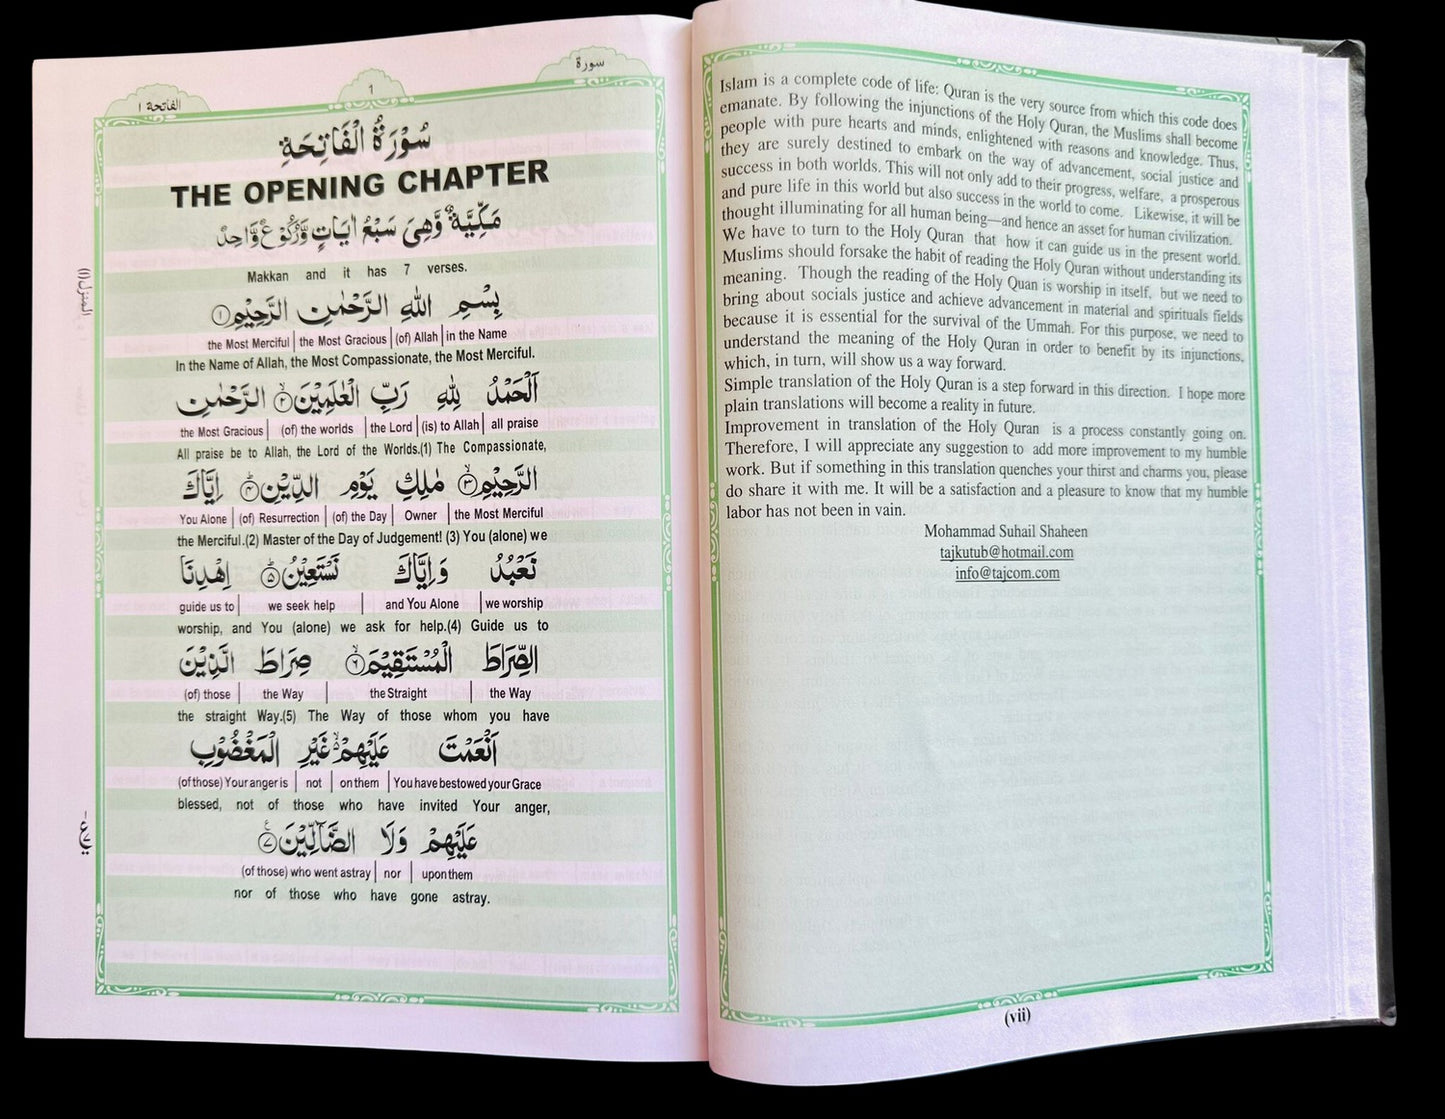 Islam is a complete code of life: Quran is the very source from which this code does
emanate. By following the injunctions of the Holy Quran, the Muslims shall become
people with pure hearts and minds, enlightened with reasons and knowledge. Thus,
they are surely destined to embark on the way of advancement, social justice and
success in both worlds. This will not only add to their progress, welfare, a prosperous
and pure life in this world but also success in the world to come. Likewise, it will be
thought illuminating for all human being—and hence an asset for human civilization.
We have to turn to the Holy Quran that how it can guide us in the present world.
Muslims should forsake the habit of reading the Holy Quran without understanding its
meaning. Though the reading of the Holy Quan is worship in itself, but we need to
bring about socials justice and achieve advancement in material and spirituals fields
because it is essential for the survival of the Ummah. For this purpose, we need to
understand the meaning of the Holy Quran in order to benefit by its injunctions,
which, in turn, will show us a way forward.
Simple translation of the Holy Quran is a step forward in this direction. I hope more
plain translations will become a reality in future.
Improvement in translation of the Holy Quran is a process constantly going on.
Therefore, I will appreciate any suggestion to add more improvement to my humble
work. But if something in this translation quenches your thirst and charms you, please
do share it with me. It will be a satisfaction and a pleasure to know that my humble
labor has not been in vain.
Mohammad Suhail Shaheen
tajkutub@hotmail.com
info@tajcom.com
(vii)
سورة
1
الفاتحة ١
سُوْرَةُ الْفَاتِحَةِ
THE OPENING CHAPTER
مَكِّيَّةٌ وَّهِىَ سَبْعُ اٰيَاتٍ وَّرُكُوْعٌ وَّاحِدٌ
Makkan and it has 7 verses.
بِسْمِ اللهِ الرَّحْمٰنِ الرَّحِيْمِ ١
the Most Merciful | the Most Gracious | (of) Allah | in the Name
In the Name of Allah, the Most Compassionate, the Most Merciful.
اَلْحَمْدُ لِلّٰهِ رَبِّ الْعٰلَمِيْنَ ٢ الرَّحْمٰنِ
the Most Gracious | (of) the worlds | the Lord | (is) to Allah | all praise
All praise be to Allah, the Lord of the Worlds.(1) The Compassionate,
الرَّحِيْمِ ٣ مٰلِكِ يَوْمِ الدِّيْنِ ٤ اِيَّاكَ
You Alone | (of) Resurrection | (of) the Day | Owner | the Most Merciful
the Merciful.(2) Master of the Day of Judgement! (3) You (alone) we
نَعْبُدُ وَاِيَّاكَ نَسْتَعِيْنُ ٥ اِهْدِنَا
guide us to | we seek help | and You Alone | we worship
worship, and You (alone) we ask for help.(4) Guide us to
الصِّرَاطَ الْمُسْتَقِيْمَ ٦ صِرَاطَ الَّذِيْنَ
(of) those | the Way | the Straight | the Way
the straight Way.(5) The Way of those whom you have
اَنْعَمْتَ عَلَيْهِمْ غَيْرِ الْمَغْضُوْبِ
(of those) Your anger is | not | on them | You have bestowed your Grace
blessed, not of those who have invited Your anger,
عَلَيْهِمْ وَلَا الضَّآلِّيْنَ ٧
(of those) who went astray | nor | upon them
nor of those who have gone astray.
المنزل (١)